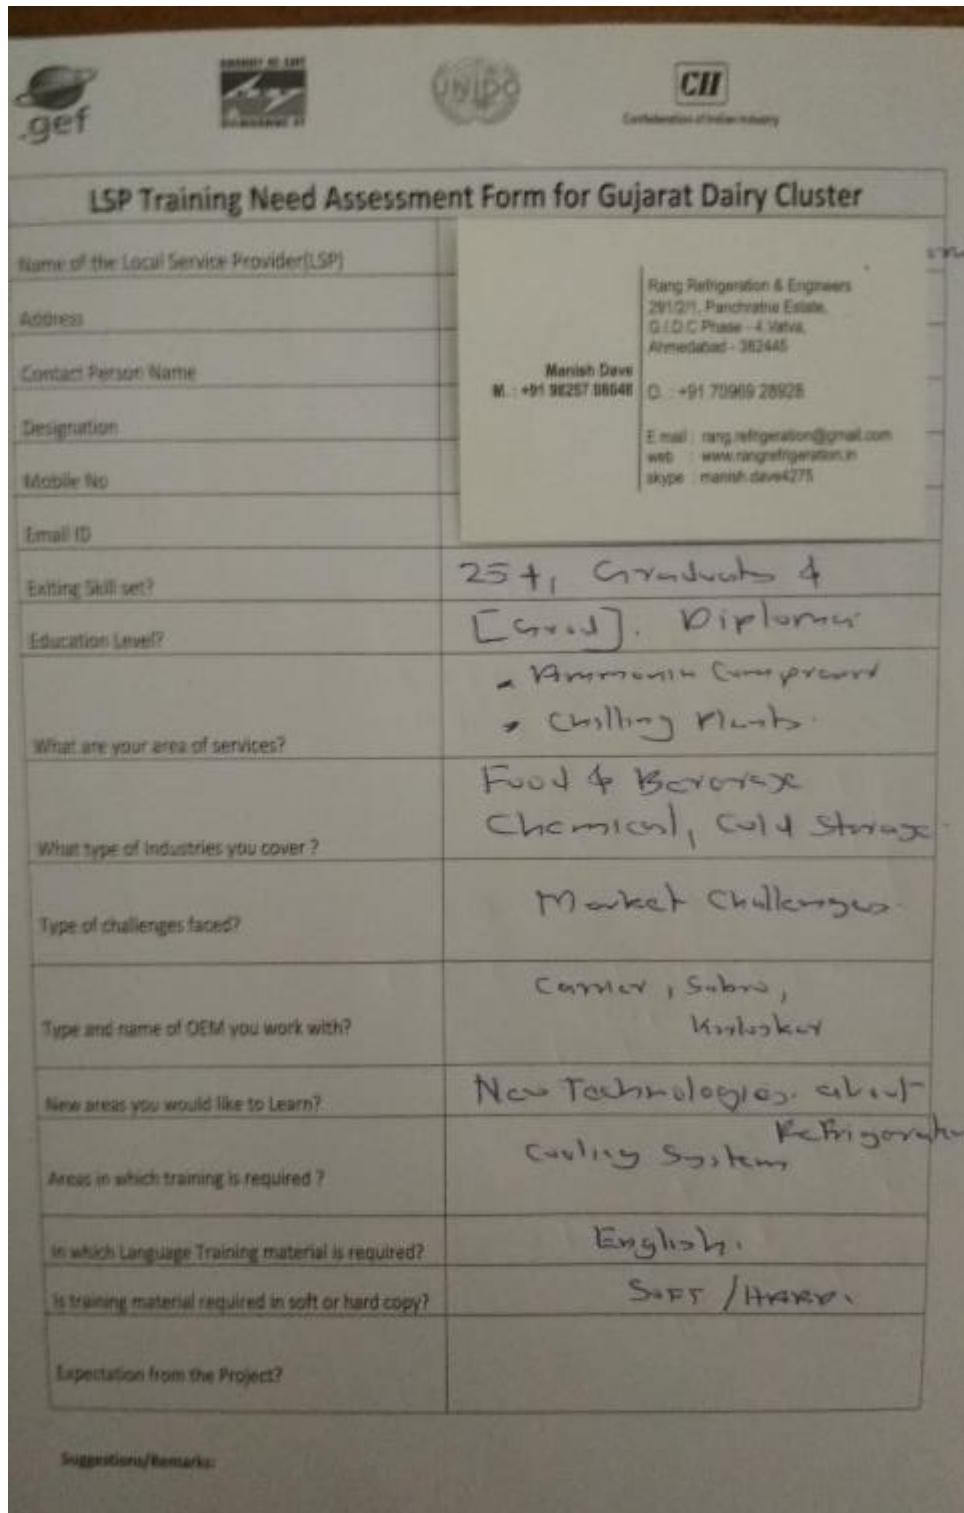 .gef
UNIDO
CII
Confederation of Indian Industry
LSP Training Need Assessment Form for Gujarat Dairy Cluster
Name of the Local Service Provider(LSP)
Address
Contact Person Name
Designation
Mobile No
Email ID
Rang Refrigeration & Engineers
291/2/1, Panchratna Estate,
G.I.D.C Phase - 4, Vatva,
Ahmedabad - 382445
Manish Dave
M. : +91 98257 O. : +91 70969 28928
E mail : rang.refrigeration@gmail.com
web : www.rangrefrigeration.in
skype : manish.dave4275
Exiting Skill set? 25+, Graduate &
Education Level? [Grad]. Diploma
What are your area of services? Ammonia
Chilling Plants.
What type of Industries you cover ? Food & Beverage
Chemical, Cold Storage
Type of challenges faced? Market Challenges.
Type and name of OEM you work with? Carrier, Sabro,
Kirloskar
New areas you would like to Learn? New Technologies. about
Refrigeration
Areas in which training is required ? Cooling System
In which Language Training material is required? English.
Is training material required in soft or hard copy? SOFT / HARD.
Expectation from the Project?
Suggestions/Remarks: